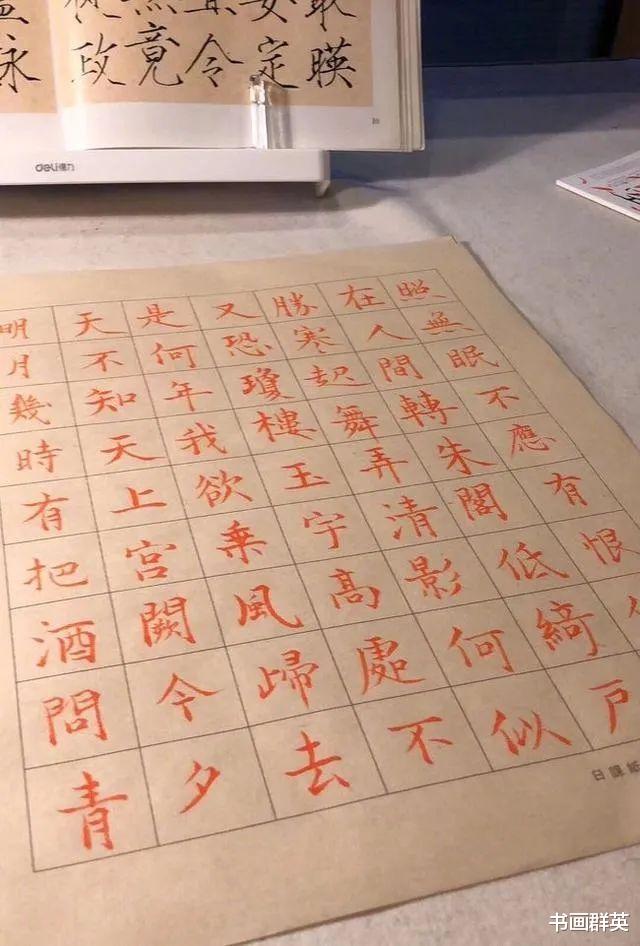 永 政 竟 令 定 暎
deli得力
明月幾時有把酒問青
天不知天上宮闕今夕
是何年我欲乘風歸去
又恐瓊樓玉宇高處不
勝寒起舞弄清影何似
在人間轉朱閣低綺戶
照無眠不應有恨
日課紙
书画群英